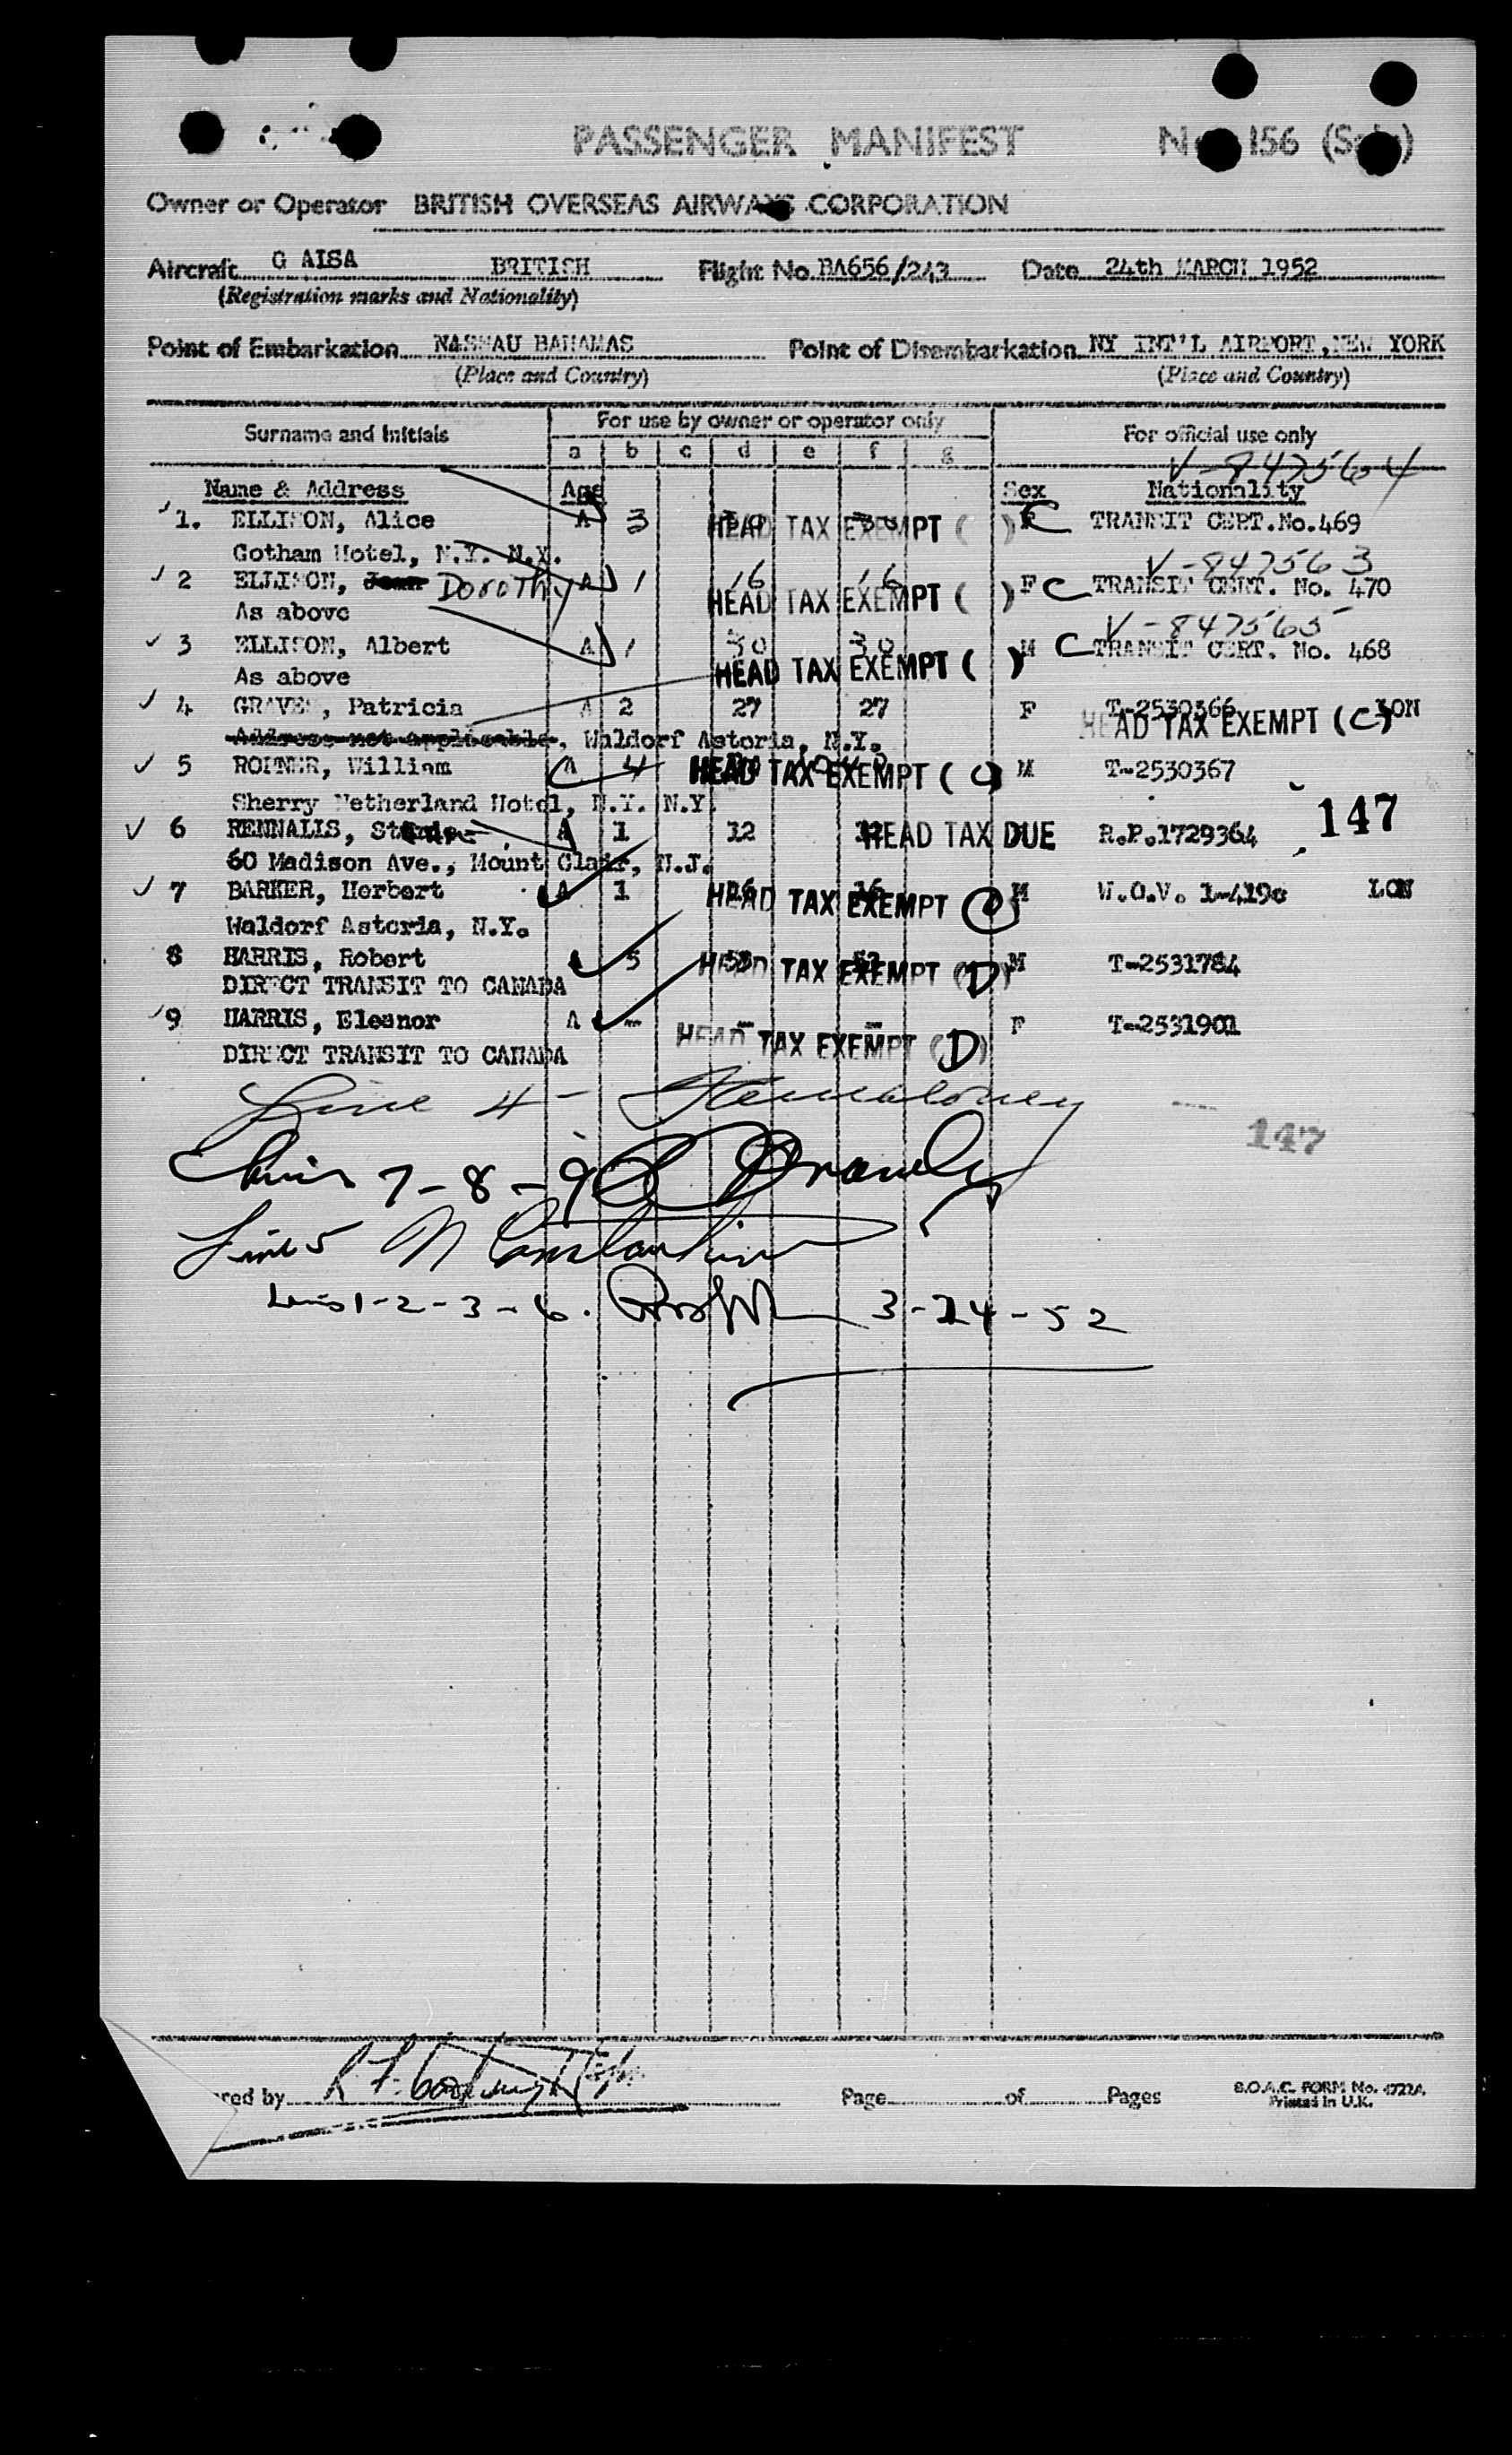 PASSENGER MANIFEST 156
Owner or Operator BRITISH OVERSEAS AIRWAYS CORPORATION
Aircraft G AISA BRITISH Flight No. BA656/243 Date 24th MARCH 1952
(Registration marks and Nationality)
Point of Embarkation NASSAU BAHAMAS Point of Disembarkation NY INT'L AIRPORT, NEW YORK
(Place and Country) (Place and Country)
Surname and Initials For use by owner or operator only For official use only
a b c d e f g
V-8475564
Name & Address Age Sex Nationality
1. ELLISON, Alice A 3 HEAD TAX EXEMPT ( ) C TRANSIT CERT.No.469
Gotham Hotel, N.Y. N.Y. V-847563
2 ELLISON, Dorothy A 1 16 16 HEAD TAX EXEMPT ( ) F C TRANSIT CERT. No. 470
As above V-847565
3 ELLISON, Albert A 1 30 30 M C TRANSIT CERT. No. 468
As above HEAD TAX EXEMPT ( )
4 GRAVES, Patricia A 2 27 27 F T-2530366 LON
HEAD TAX EXEMPT (C)
Address not applicable, Waldorf Astoria, N.Y.
5 William A 4 HEAD TAX EXEMPT (C) M T-2530367
Sherry Netherland Hotel, N.Y. N.Y.
147
6 RENNALLS, A 1 12 HEAD TAX DUE R.P.1729364
60 Madison Ave., Mount Clair, N.J.
7 BARKER, Herbert A 1 16 16 HEAD TAX EXEMPT (D) M W.O.V. 1-419c LON
Waldorf Astoria, N.Y.
8 HARRIS, Robert A 5 53 HEAD TAX EXEMPT (D) M T-2531784
DIRECT TRANSIT TO CANADA
9 HARRIS, Eleanor A - - - HEAD TAX EXEMPT (D) F T-2531901
DIRECT TRANSIT TO CANADA
Line 4 -
147
Lines 7-8-9
Line 5
Lines 1-2-3-6. 3-24-52
ared by Page of Pages B.O.A.C. FORM No. 4722A.
Printed in U.K.